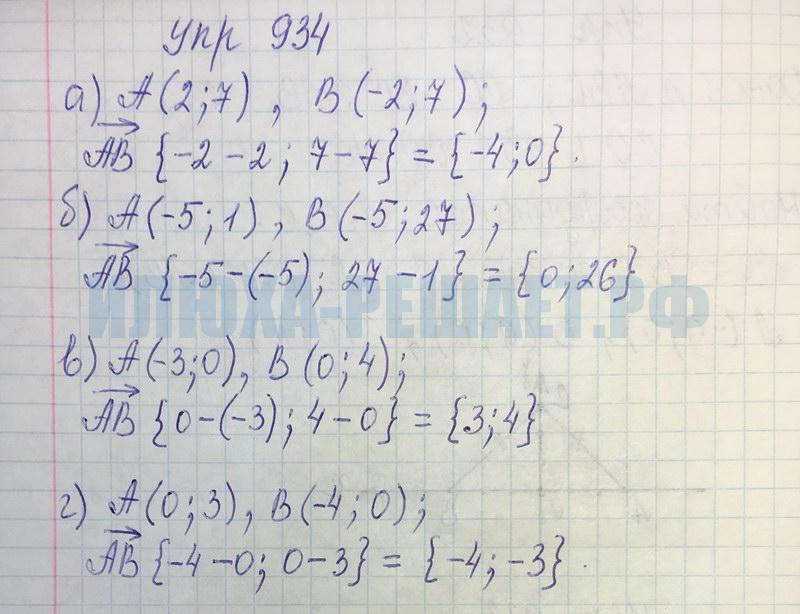 Упр 934
а) A(2;7), B(-2;7);
AB {-2-2; 7-7} = {-4;0}.
б) A(-5;1), B(-5;27);
AB {-5-(-5); 27-1} = {0;26}
ИЛЮХА-РЕШАЕТ.РФ
в) A(-3;0), B(0;4);
AB {0-(-3); 4-0} = {3;4}
г) A(0;3), B(-4;0);
AB {-4-0; 0-3} = {-4;-3}.